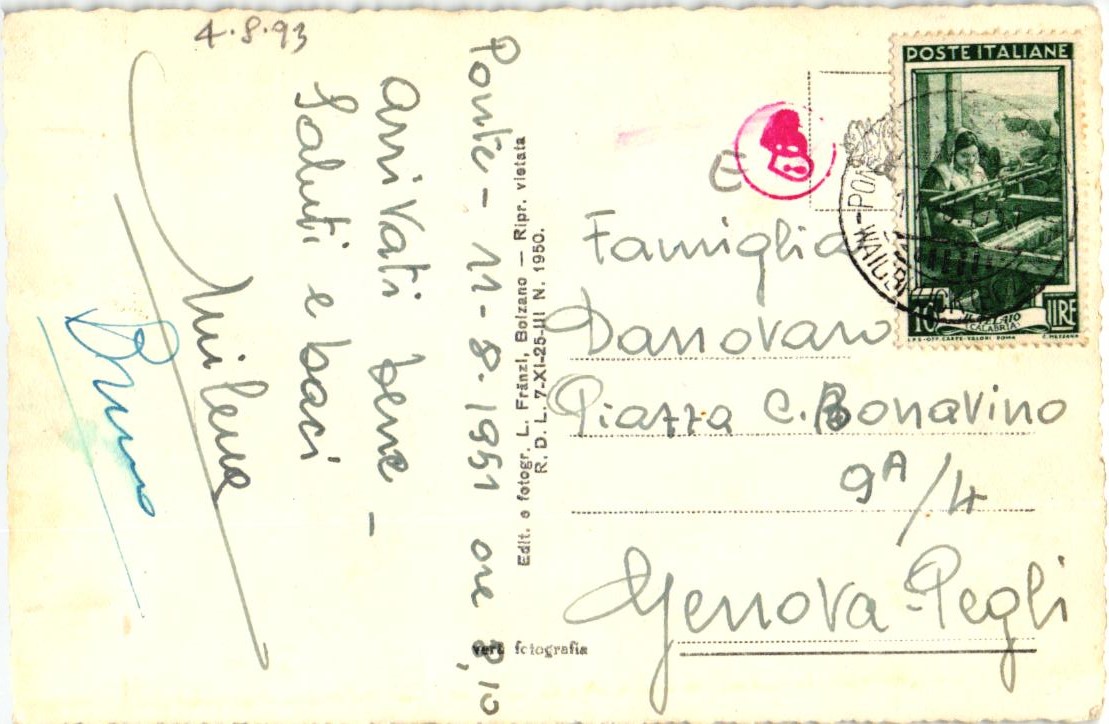 4.8.93
Ponte - 11-8.1951 ore 8,10
arrivati bene -
Saluti e baci
Milena
Bruno
Edit. e fotogr. L. Fränzl, Bolzano — Ripr. vietata
R. D. L. 7-XI-25-III N. 1950.
vera fotografia
E
POSTE ITALIANE
10 LIRE
IL TELAIO
(CALABRIA)
I.P.S.-OFF. CARTE-VALORI ROMA
C. MEZZANA
Famiglia
Danovaro
Piazza C. Bonavino
9A/4
Genova-Pegli